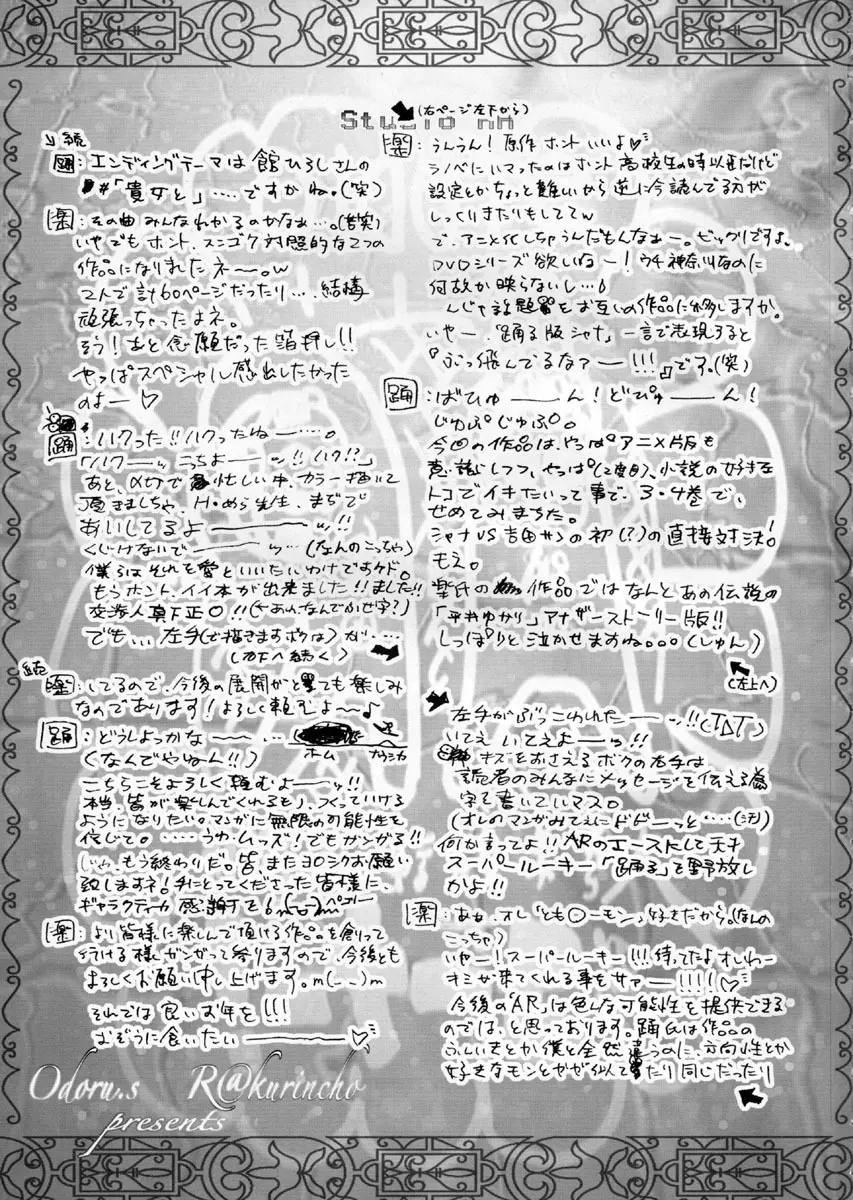 Studio nn
(右ページ左下から)
楽:うんうん!原作ホントいいよ♡
ラノベにハマったのはホント高校生の時以来だけど
設定とかちょっと難しいから逆に今読んでる方が
しっくりきたりもしててw
で、アニメ化しちゃうんだもんなぁー。ビックリですよ。
DVDシリーズ欲しいねー!ウチ神奈川なのに
何故か映らないし…
んじゃ話題をお互いの作品に移しますか。
いやー、「踊る版シャナ」一言で表現すると
『ぶっ飛んでるなァー!!!』です。(笑)
踊:ばひゅーーん!どぴゅーーん!
じゅぷじゅぷ。
今回の作品は、やっぱアニメ版も
意識しつつ、やっぱ(2度目)、小説の好きな
トコでイキたいって事で、3・4巻で、
せめてみまちた。
シャナVS吉田サンの初(?)の直接対決!
もえ。
楽氏の作品ではなんとあの伝説の
「平井ゆかり」アナザーストーリー版!!
しっぽりと泣かせますね。。。(しゅん)
(左上へ)
続
踊:エンディングテーマは舘ひろしさんの
#「貴女と」……ですかね。(笑)
楽:その曲みんなわかるのかなぁ…。(苦笑)
いやでもホント、スンゴク対照的な2つの
作品になりましたネー。w
2人で計60ページだったり…、結構
頑張っちゃったよネ。
そう!あと念願だった箔押し!!
やっぱスペシャル感出したかった
のよー♡
踊:ハクった!!ハクったねー…。
「ハクーッ こっちよーッ!!ハク!?」
あと、〆切で忙しい中、カラー描いて
頂きましちゃ、H・めら先生、まぢで
あいしてるよーーーーッ!!
くじけないでーーーッ…(なんのこっちゃ)
僕らはそれを愛といいたいわけですケド。
もうホント、イイ本が出来ました!!ました!!
交渉人真下正〇!!(←あれなんでふせ字?)
でも…、左手(で描きますボクは)が…
(右下へ続く)
左手がぶっこわれたーーッ!!(TДT)
いてぇ いてぇよーーッ!!
キズをおさえるボクの右手は
読者のみんなにメッセージを伝える為
字を書いていマス。
(オレのマンガみてぇにドドーーっと…(汗)
何か言ってよ!!ARのエースして天才
スーパールーキー「踊る」を野放し
かよ!!
楽:あぁ、オレ「とも〇ーモン」好きだから。(なんの
こっちゃ)
いやー!スーパールーキー!!!待ってたよオレわー
キミが来てくれる事をサァー!!!!(♡
今後の「AR」は色んな可能性を提供できる
のでは、と思っております。踊氏は作品の
ふんいきとか僕と全然違うのに、方向性とか
好きなモンとかが似てたり同じだったり
続
楽:してるので、今後の展開がとても楽しみ
なのであります!よろしく頼むよ〜♪
踊:どうしよっかなーー…。
ホーム
ナウシカ
(なんでやねん!!)
こちらこそよろしく頼むよーッ!!
本当、皆が楽しんでくれるもん、つくっていける
ようになりたい。マンガに無限の可能性を
信じて。……うわ、ムッズ!でもガンがる!!
じゃ、もう終わりだ。皆、またヨロシクお願い
致しますネ!手にとってくださった皆様に、
ギャラクティカ感謝ってを6m(_ _)m ペコリー
楽:より皆様に楽しんで頂ける作品を創って
行ける様、ガンガって参りますので、今後とも
よろしくお願い申し上げます。m(_ _)m
それでは良いお年を!!!
おぞうに食いたいーーーー♡
Odoru.s R@kurincho
presents